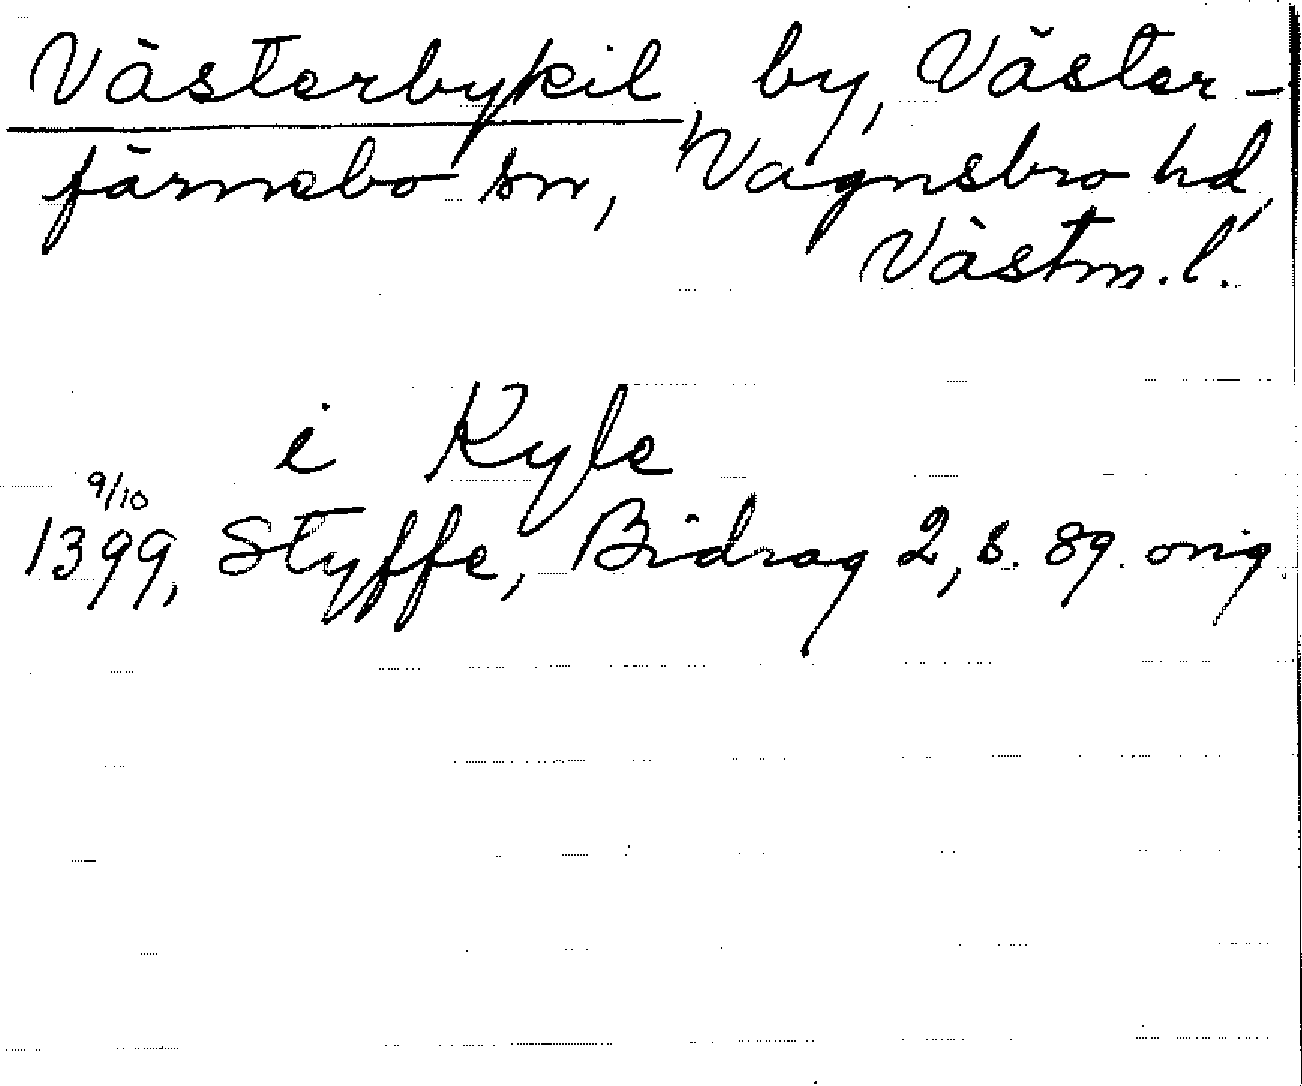 Västerbykil by, Väster-
färnebo sn, Vagnsbro hd,
Västm.l.
i Kyle
9/10
1399, Styffe, Bidrag 2, s. 89. orig